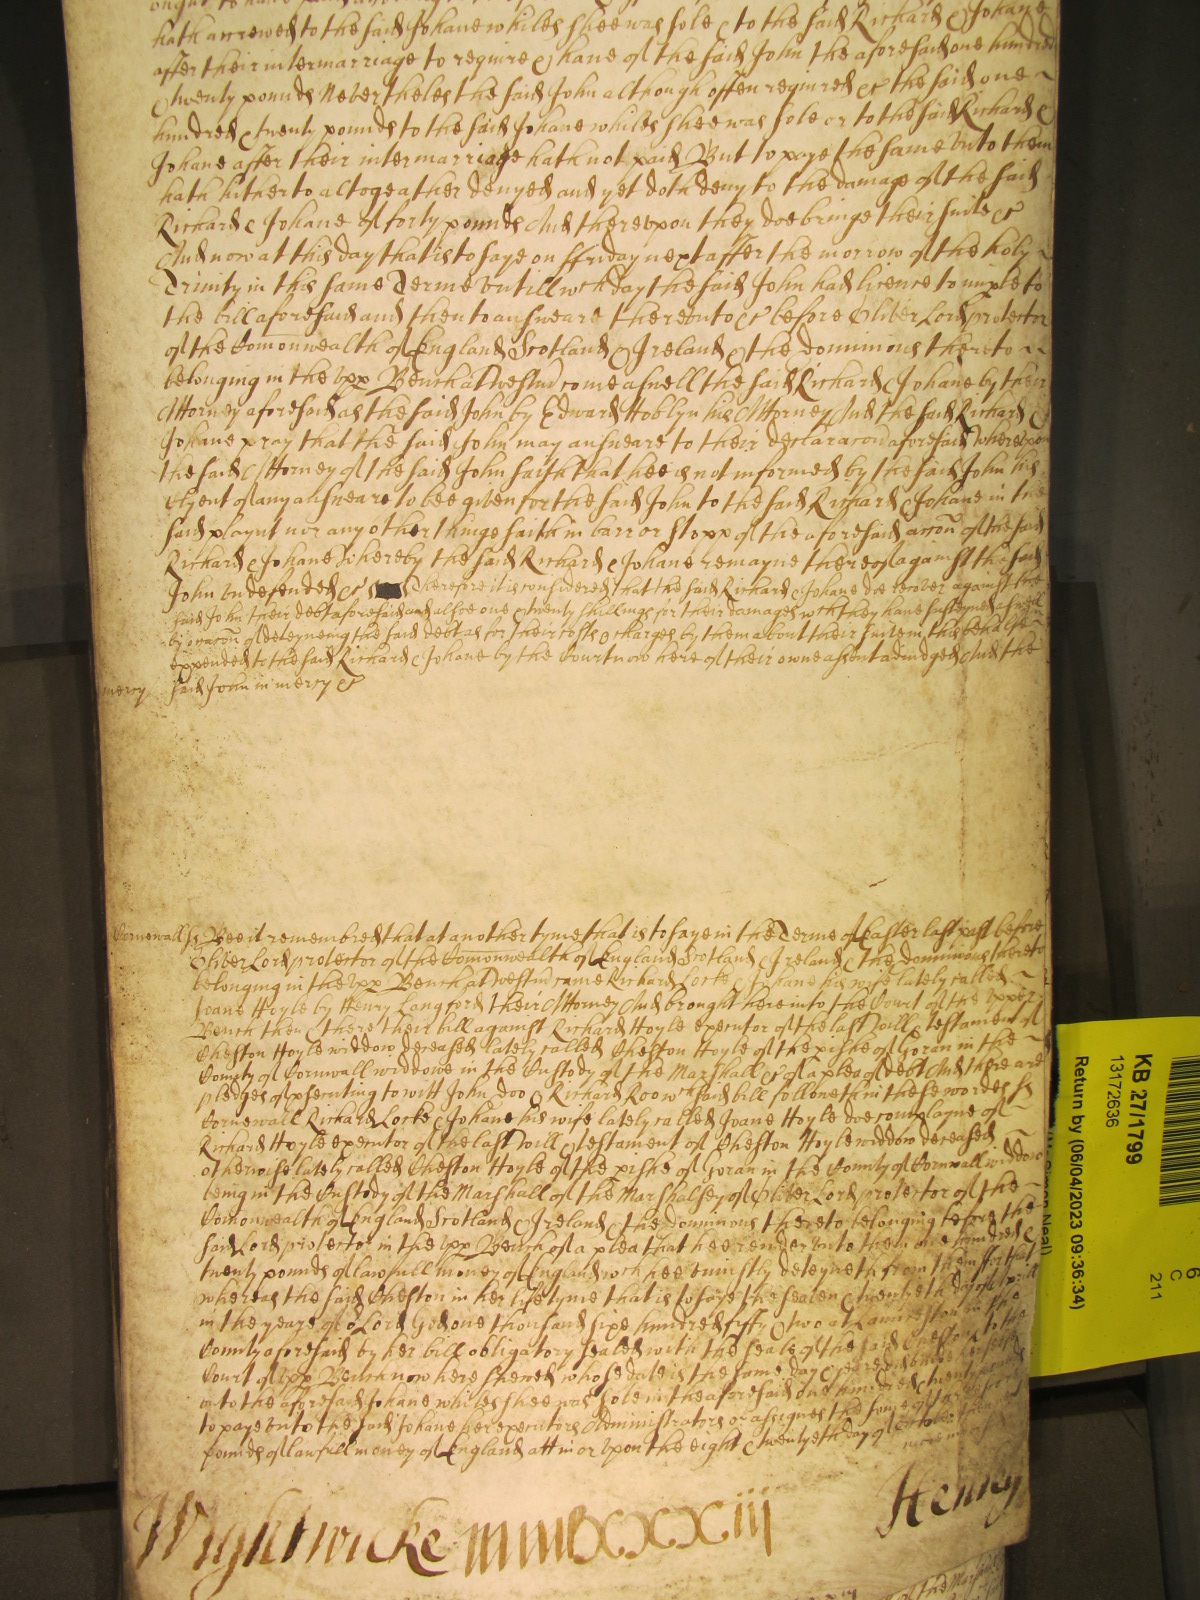 hath accrewed to the said Johane whiles shee was sole & to the said Richard & Johane
after their intermarriage to require & have of the said John the aforesaid one hundred
& twenty pounds Nevertheles the said John although often required &c the said one
hundred & twenty pounds to the said Johane whiles shee was sole or to the said Richard &
Johane after their intermarriage hath not paid But to paye the same unto them
hath hitherto altogeather denyed and yet doth deny to the damage of the said
Richard & Johane of forty pounds And thereupon they doe bringe their suite &c
And now at this day that is to saye on ffriday next after the morrow of the holy
Trinity in this same Terme untill wch day the said John had licence to imple to
the bill aforesaid and then to answeare thereunto &c before Oliver Lord protector
of the Comonwealth of England Scotland & Ireland & the dominions thereto
belonging in the upp Bench at Westm come aswell the said Richard & Johane by their
Attorney aforesaid as the said John by Edward Hoblyn his Attorney And the said Richard &
Johane pray that the said John may answeare to their declaracon aforesaid whereupon
the said Attorney of the said John saith that hee is not informed by the said John his
Clyent of any answeare to bee given for the said John to the said Richard & Johane in the
said playnt nor any other thinge saith in barr or stopp of the aforesaid accon of the said
Richard & Johane whereby the said Richard & Johane remayne thereof against the said
John undefended &c Therefore it is considered that the said Richard & Johane doe recover against the
said John their debt aforesaid and alsoe one & twenty shillings for their damages wch they have susteyned aswell
by occacon of deteyneing the said debt as for their costs & charges by them about their suite in this behalfe
expended to the said Richard & Johane by the Court now here of their owne assent adiudged And the
mercy said John in mercy &c
Cornewall ss Bee it remembred that at another tyme that is to saye in the Terme of Easter last past before
Oliver Lord protector of the Comonwealth of England Scotland & Ireland & the dominions thereto
belonging in the upp Bench at Westm came Richard Locke & Johane his wife lately called
Joane Hoyle by Henry Langford their Attorney And brought here into the Court of the upper
Bench then & there their bill against Richard Hoyle executor of the last will & testament of
Cheston Hoyle widdow deceased lately called Cheston Hoyle of the pishe of Goran in the
County of Cornwall widdowe in the Custody of the Marshall &c of a plea of debt And there are
pledges of prosecuting to witt John Doo & Richard Roo wch said bill followeth in these wordes ss
Cornewall Richard Locke & Johane his wife lately called Joane Hoyle doe complayne of
Richard Hoyle executor of the last will & testament of Cheston Hoyle widdow deceased
otherwise lately called Cheston Hoyle of the pishe of Goran in the County of Cornwall widdow
being in the Custody of the Marshall of the Marshalsey of Oliver Lord protector of the
Comonwealth of England Scotland & Ireland & the dominions thereto belonging before the
said Lord protector in the upp Bench of a plea that hee render unto them one hundred &
twenty pounds of lawfull money of England wch hee uniustly deteyneth from them ffor that
whereas the said Cheston in her life tyme that is to saye the seaven & twentieth day of
in the yeare of or Lord God one thousand sixe hundred fifty & two at Lanceston in the
County aforesaid by her bill obligatory sealed with the seale of the said Cheston & to the
Court of upp Bench now here shewed whose date is the same day & yeare did
unto the aforesaid Johane whiles shee was sole in the aforesaid one hundred & twenty pounds
to paye unto the said Johane her executors Administrators or assignes the some of
pounds of lawfull money of England att in or upon the eight & twentyeth day of October
Wightwicke mmDCXXXiii Henley
KB 27/1799
13172636
Return by (06/04/2023 09:36:34)
6
C
211